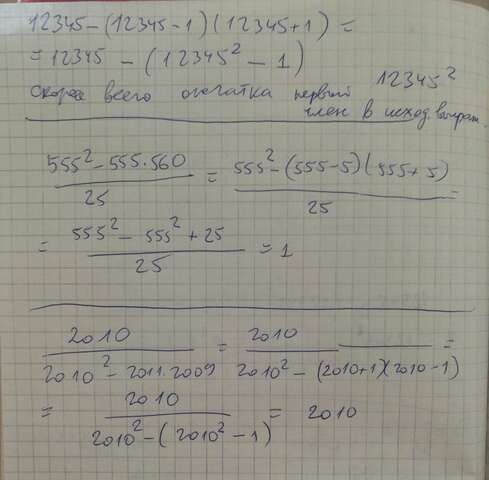 12345-(12345-1)(12345+1) =
= 12345 - (12345² - 1)
скорее всего опечатка первый 12345²
член в исход. выраж.
555² - 555·560 / 25 = 555² - (555-5)(555+5) / 25 =
= 555² - 555² + 25 / 25 = 1
2010 / 2010² - 2011·2009 = 2010 / 2010² - (2010+1)(2010-1) =
= 2010 / 2010² - (2010² - 1) = 2010